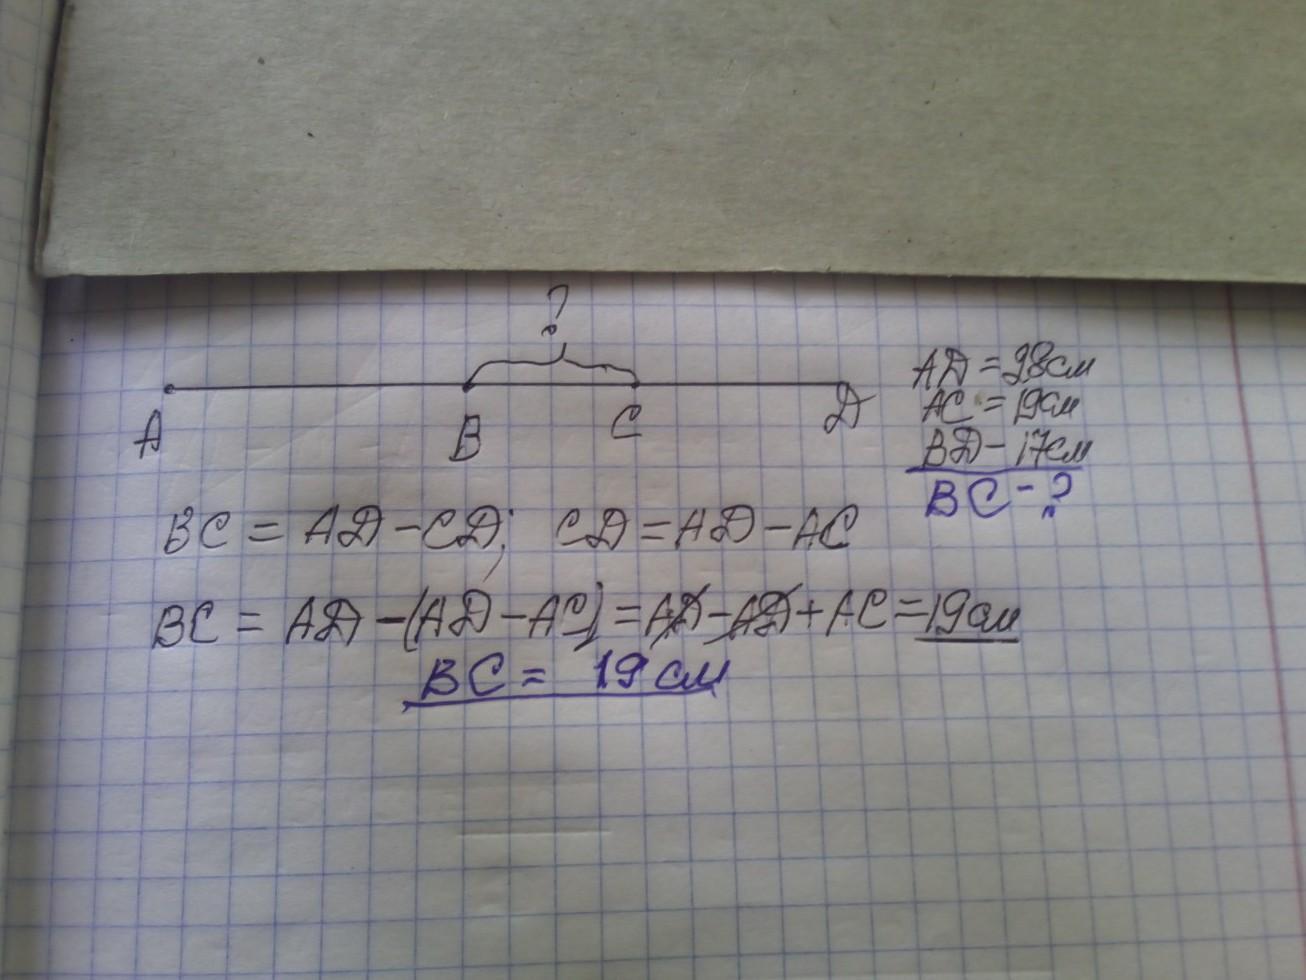 ?
A B C D
AD = 28см
AC = 19см
BD - 17см
BC - ?
BC = AD - CD; CD = AD - AC
BC = AD - (AD - AC) = AD - AD + AC = 19см
BC = 19 см